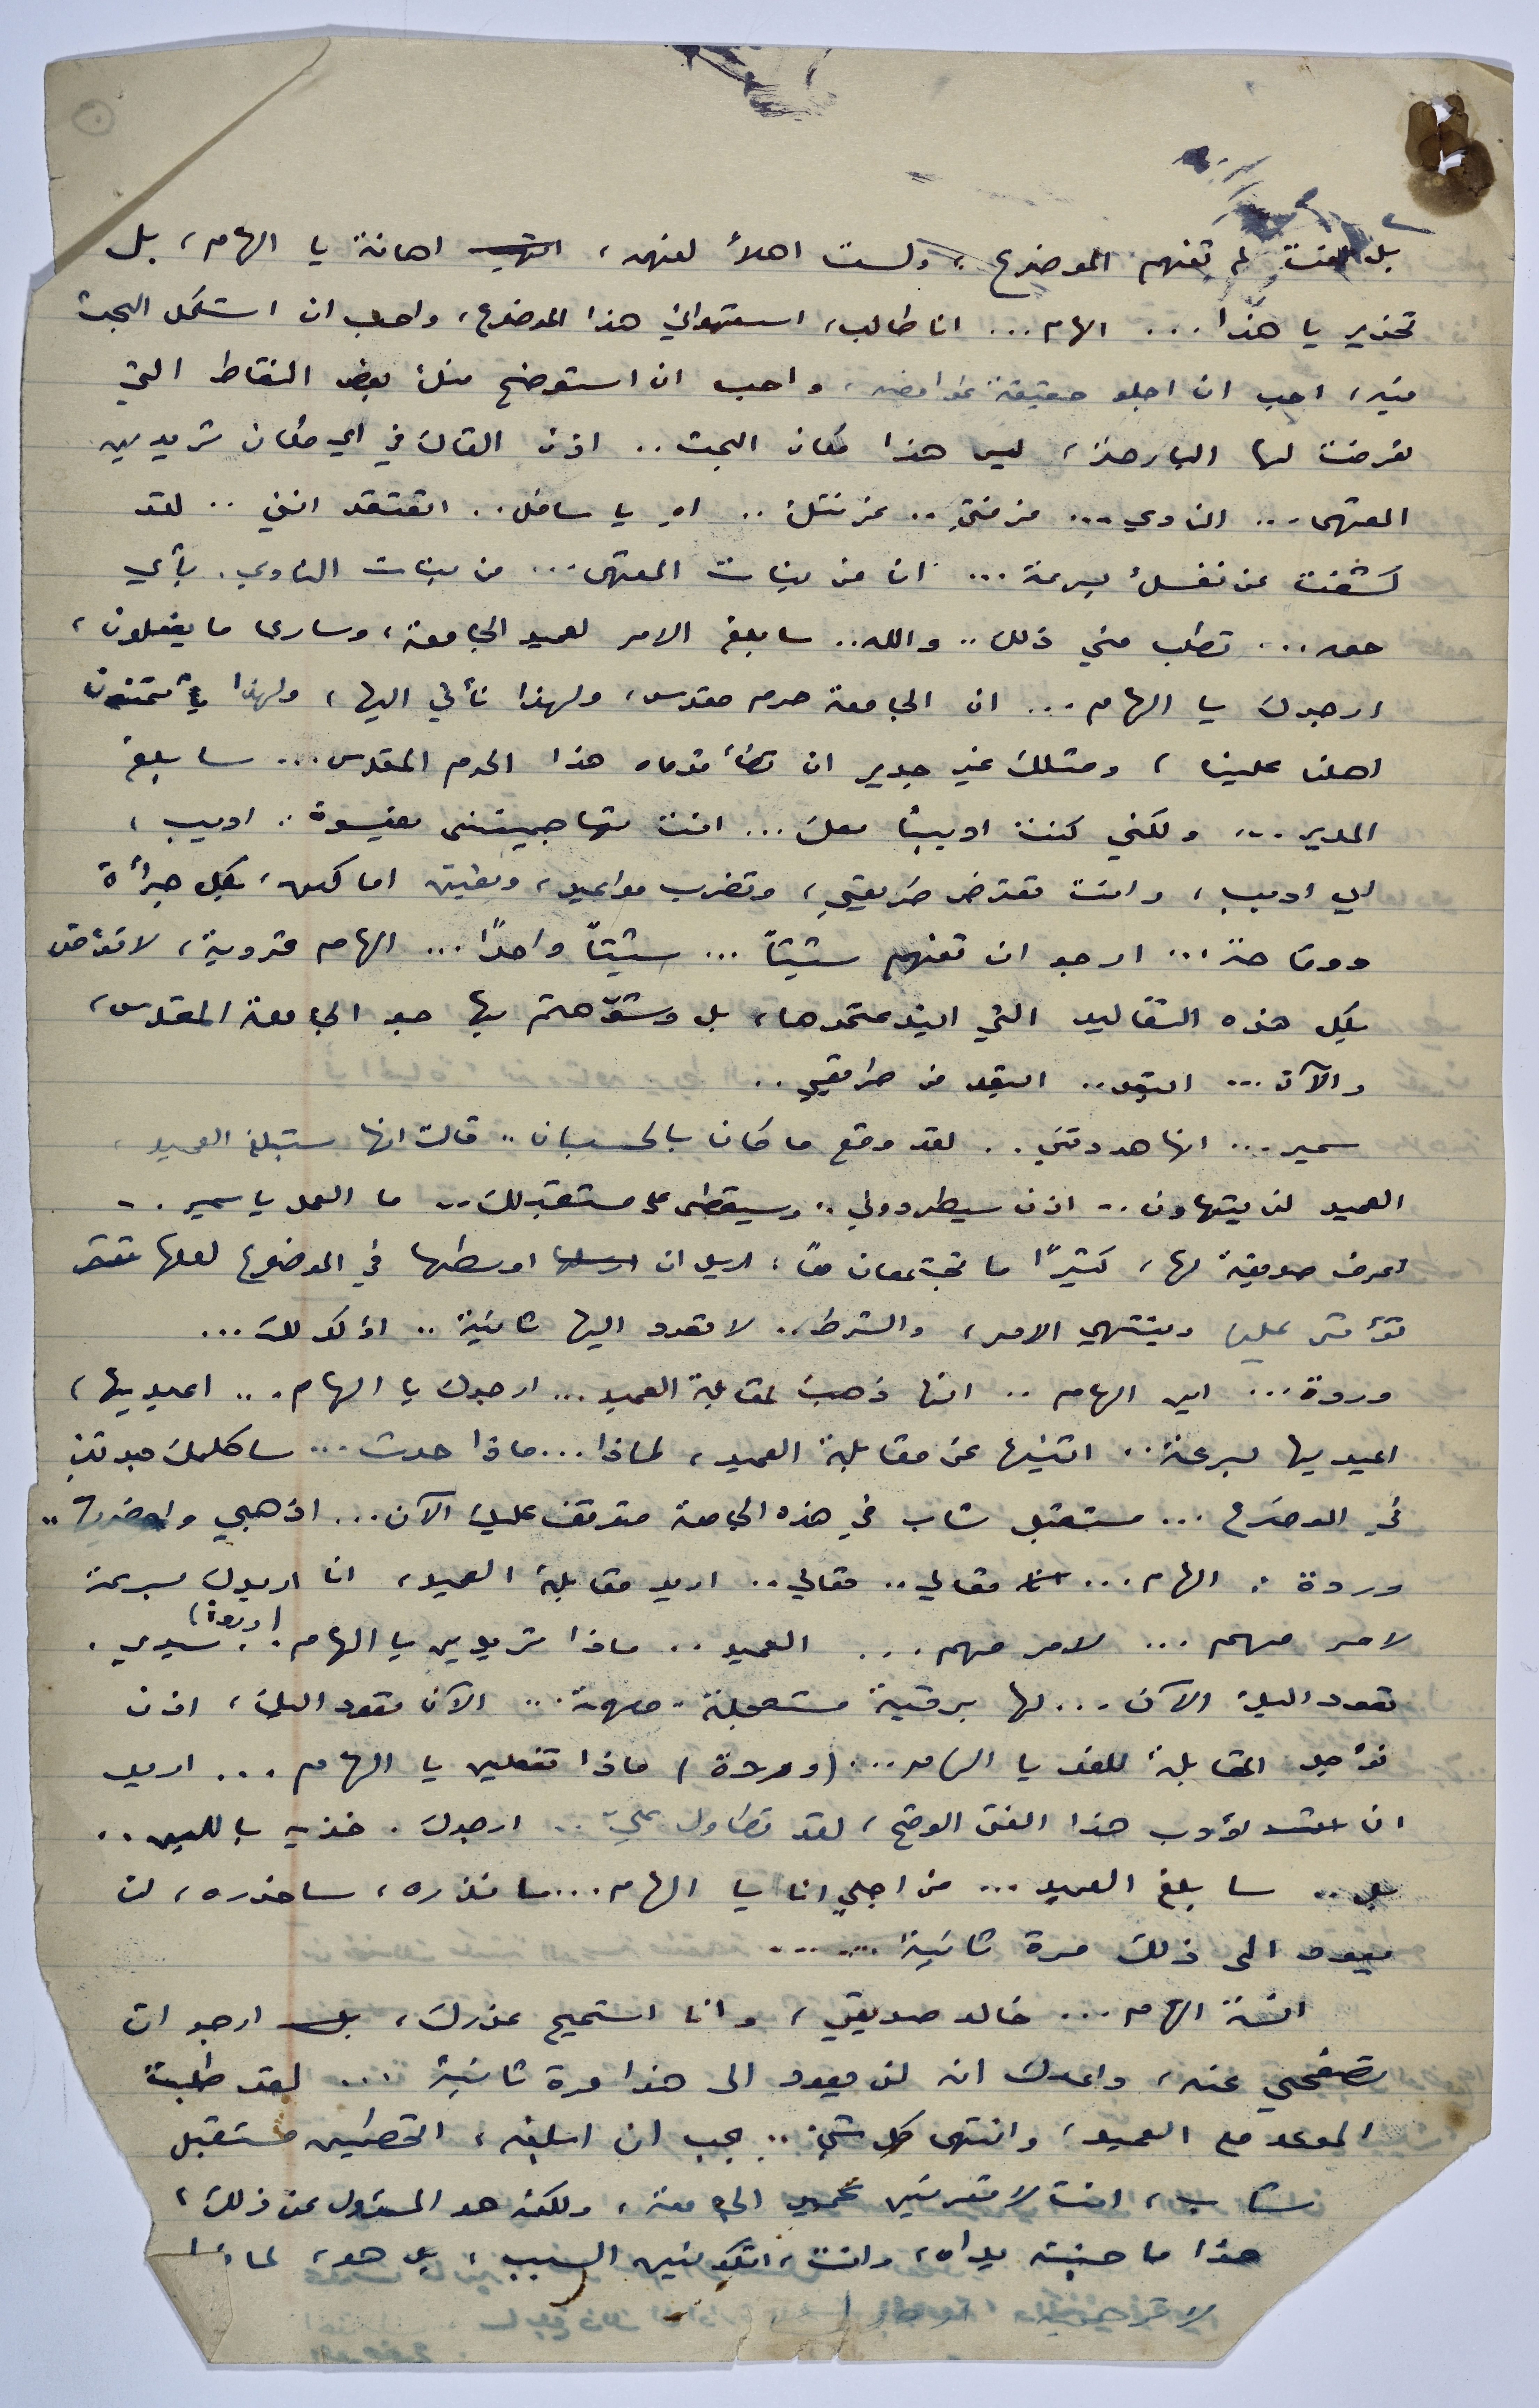 بل انت لم تفهم الموضوع، ولست اهلاً لفهمه، اهانة يا الهام، بل
تحذير يا هذا... الهام... انا طالب، استهواني هذا الموضوع، واحب ان استكمل البحث
فيه، احب ان اجلو حقيقة غوامضه، واحب ان استوضح منك بعض النقاط التي
تعرضت لها البارحة، ليس هذا مكان البحث.. اذن القاك في اي مكان تريدين
المقهى... النادي... غرفتي.. غرفتك.. اه يا سافل.. اتعتقد انني.. لقد
كشفت عن نفسك بسرعة... انا من بنات المقهى... من بنات النادي. بأي
حق... تطلب مني ذلك.. والله.. سابلغ الامر لعميد الجامعة، وسارى ما يفعلون،
ارجوك يا الهام... ان الجامعة حرم مقدس، ولهذا نأتي اليها، ولهذا يأتمنون
اهلنا علينا، ومثلك غير جدير ان تطأ قدماه هذا الحرم المقدس... سابلغ
المدير... ولكني كنت اديباً معك... انت تهاجمينني بقسوة.. اديب،
اي اديب، وانت تعترض طريقي، وتضرب مواعيد، وتعين اماكن، بكل جرأة
ووقاحة... ارجو ان تفهم شيئاً... شيئاً واحداً... الهام قروية، لا تؤمن
بكل هذه التقاليد التي ابتدعتموها، بل وشوّهتم بها جو الجامعة المقدس،
والآن... ابتعد.. ابتعد من طريقي..
سمير... انها هددتني.. لقد وقع ما كان بالحسبان.. قالت انها ستبلغ العميد،
العميد لن يتهاون.. اذن سيطردوني.. وسيقضى على مستقبلك.. ما العمل يا سمير..
اعرف صديقة لها، كثيراً ما تجتمعان معاً، اريد ان اوسطها في الموضوع لعلها
تؤثر عليها وينتهي الامر، والشرط.. لا تعود اليها ثانية.. اؤكد لك...
وردة... اين الهام.. انها ذهبت لمقابلة العميد... ارجوك يا الهام... اعيديها،
اعيديها بسرعة.. اثنيها عن مقابلة العميد، لماذا... ماذا حدث... ساكلمك
في الموضوع... مستقبل شاب في هذه الجامعة متوقف عليك الآن... اذهبي واحضريها..
وردة: الهام... تعالي.. تعالي.. اريد مقابلة العميد، انا اريدك بسرعة
لامر مهم... لامر مهم... العميد.. ماذا تريدين يا الهام. (وردة) سيدي.
تعود اليك الآن... لها برقية مستعجلة. مهمة... الآن تعود اليك، اذن
نؤجل المقابلة للغد يا الهام... (وردة) ماذا تفعلين يا الهام... اريد
ان اؤدب هذا الفتى الوقح، لقد تطاول عليّ.. ارجوك. خذيه باللين..
بل.. سابلغ العميد... من اجلي انا يا الهام... سانذره، ساحذره، لن
يعود الى ذلك مرة ثانية......
انسة الهام... خالد صديقي، وانا استميح عذرك، ارجو ان
تصفحي عنه، واعدك انه لن يعود الى هذا مرة ثانية... لقد طلبت
الموعد مع العميد، وانتهى كل شيء.. يجب ان ابلغه، اتحطمين مستقبل
شاب، انت لا تعرفين عميد الجامعة، ولكنه هو المسؤول عن ذلك،
هذا ما جنته يداه، وانت، اتكونين السبب، بل هو، لماذا